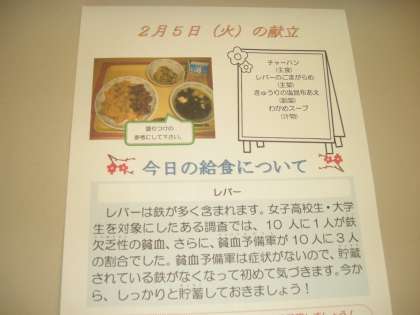 2月5日（火）の献立
チャーハン
（主食）
レバーのごまがらめ
（主菜）
きゅうりの塩昆布あえ
（副菜）
わかめスープ
（汁物）
盛りつけの
参考にして下さい。
今日の給食について
レバー
レバーは鉄が多く含まれます。女子高校生・大学
生を対象にしたある調査では、10人に1人が鉄
欠乏性の貧血、さらに、貧血予備軍が10人に3人
の割合でした。貧血予備軍は症状がないので、貯蔵
されている鉄がなくなって初めて気づきます。今か
ら、しっかりと貯蓄しておきましょう！